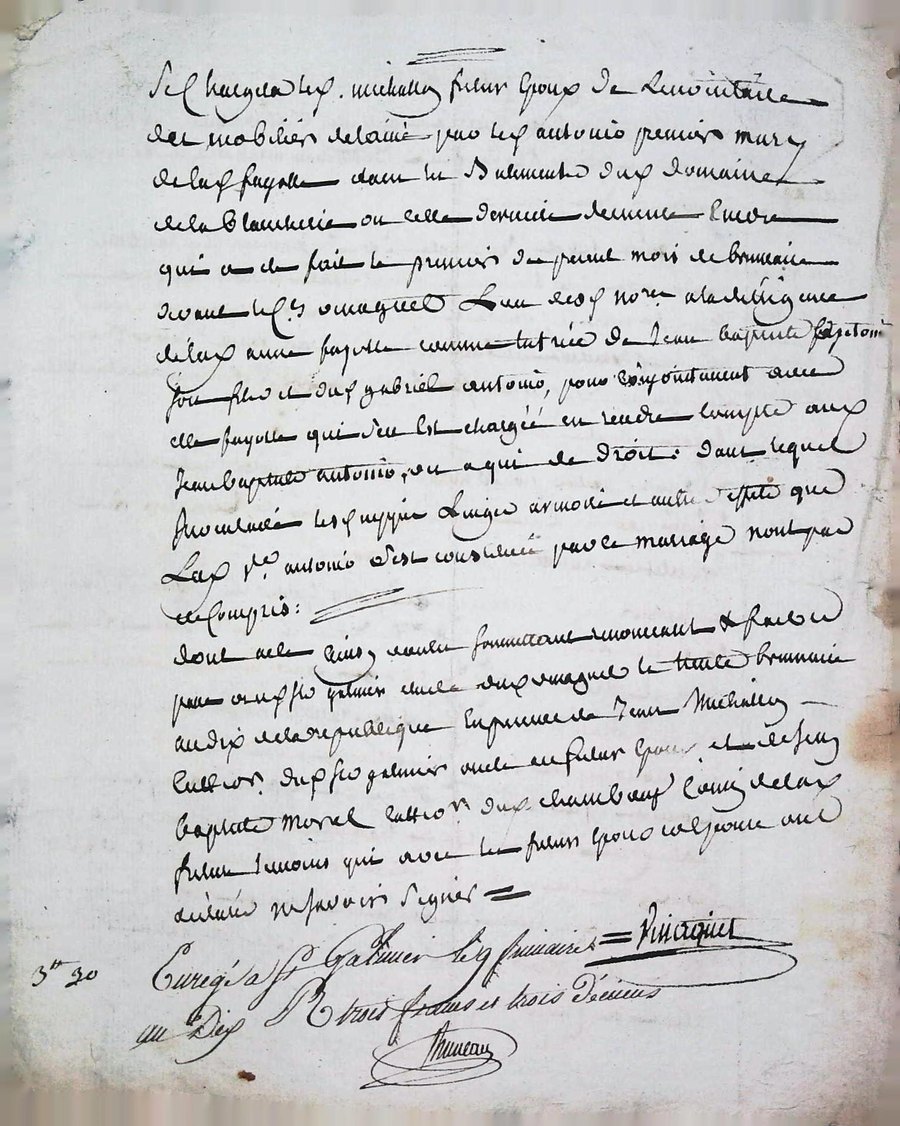 Se Chargera led. michallon futur Epoux de Linventaire
des mobiliers delaissé par led antonio premier mary
de lad fayolle dans les Batiments dud domaine
de la Blancherie ou elle derniere demeure Encore
qui a ete fait le premier du present mois de brumaire
devant led. omaguet L'un desd no.res a la diligence
de lad anne fayolle comme tutrice de Jean baptiste
son fils et dud gabriel antonio, pour conjointement avec
elle fayolle qui s'en est chargée en rendre compte aud
Jean baptiste antonio, ou a qui de droit. dans lequel
Inventaire les Linge armoire et autres effets que
Lad antonio s'est constitué par le mariage nont pas
ete Compris:
dont acte Ainsy voulu soumettant renoncant & fait et
passé aud st galmier etude dud omaguet le trente brumaire
an dix de la republique En presence de Jean Michallon
cultior. dud st galmier oncle du futur Epoux et de Jean
baptiste Morel cultior. dud chambœuf Cousin de lad
future temoins qui avec les futurs Epoux et Epouse ont
declaré ne savoir Signer =
3tt 30 Enregé a St Galmier le 9 frimaire
an Dix R trois francs et trois décimes